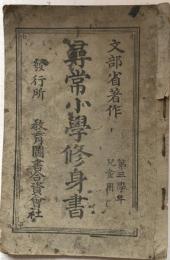 文部省著作
尋常小學修身書
第三學年
兒童用
發行所
教育圖書合資會社